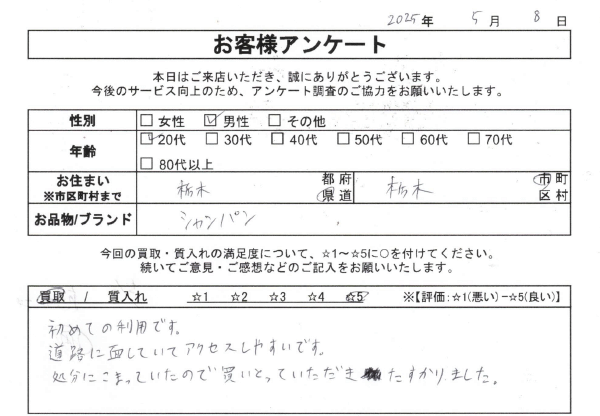 2025年 5月 8日
お客様アンケート
本日はご来店いただき、誠にありがとうございます。
今後のサービス向上のため、アンケート調査のご協力をお願いいたします。
性別 □女性 ☑男性 □その他
年齢 ☑20代 □30代 □40代 □50代 □60代 □70代
□80代以上
お住まい ※市区町村まで 栃木 都府県道 栃木 市町区村
お品物/ブランド シャンパン
今回の買取・質入れの満足度について、☆1～☆5に○を付けてください。
続いてご意見・ご感想などのご記入をお願いいたします。
買取 / 質入れ ☆1 ☆2 ☆3 ☆4 ☆5 ※【評価:☆1(悪い)−☆5(良い)】
初めての利用です。
道路に面していてアクセスしやすいです。
処分にこまっていたので買いとっていただきたすかりました。